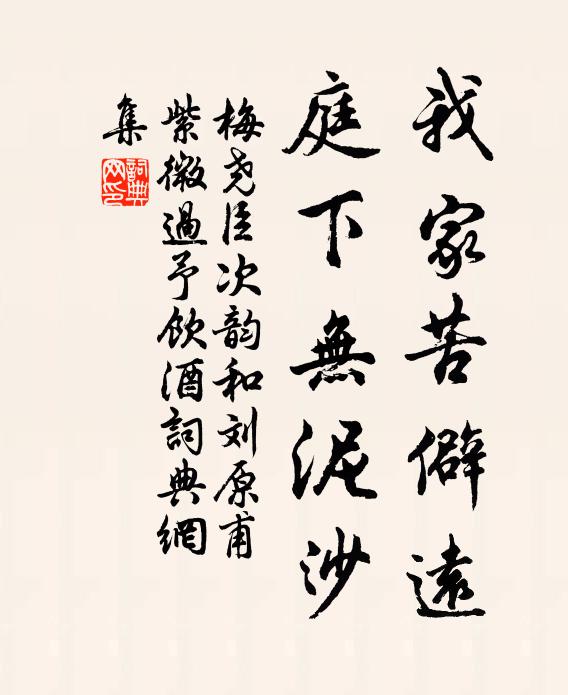 我家苦僻遠
庭下無泥沙
梅堯臣次韵和刘原甫
紫微過予飲酒詞典網
集
詞典网印